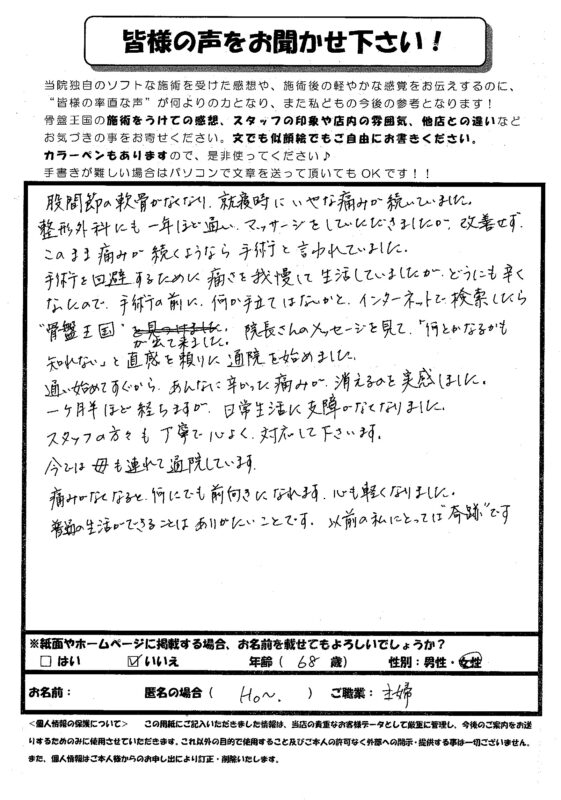 皆様の声をお聞かせ下さい！
当院独自のソフトな施術を受けた感想や、施術後の軽やかな感覚をお伝えするのに、
“皆様の率直な声”が何よりの力となり、また私どもの今後の参考となります！
骨盤王国の施術をうけての感想、スタッフの印象や店内の雰囲気、他店との違いなど
お気づきの事をお寄せください。文でも似顔絵でもご自由にお書きください。
カラーペンもありますので、是非使ってください♪
手書きが難しい場合はパソコンで文章を送って頂いてもOKです！！
股間節の軟骨がなくなり、就寝時にいやな痛みが続いていました。
整形外科にも一年ほど通い、マッサージをしていただきましたが、改善せず、
このまま痛みが続くようなら手術と言われていました。
手術を回避するために痛さを我慢して生活していましたが、どうにも辛く
なんたので、手術の前に、何か手立てはないかと、インターネットで検索したら
“骨盤王国”が出て来ました。院長さんのメッセージを見て、「何とかなるかも
知れない」と直感を頼りに通院を始めました。
通い始めてすぐから、あんなに辛かった痛みが、消えるのを実感しました。
一ヶ月半ほど経ちますが、日常生活に支障がなくなりました。
スタッフの方々も丁寧で心よく対応して下さいます。
今では母も連れて通院しています。
痛みがなくなると、何にでも前向きになれます。心も軽くなりました。
普通の生活ができることはありがたいことです。以前の私にとっては“奇跡”です
※紙面やホームページに掲載する場合、お名前を載せてもよろしいでしょうか？
□ はい ☑ いいえ 年齢（ 68 歳） 性別：男性・女性
お名前： 匿名の場合（ ） ご職業： 主婦
<個人情報の保護について> この用紙にご記入いただきました情報は、当店の貴重なお客様データとして厳重に管理し、今後のご案内をお送
りするためのみに使用させていただきます。これ以外の目的で使用すること及びご本人の許可なく外部への開示・提供する事は一切ございません。
また、個人情報はご本人様からのお申し出により訂正・削除いたします。